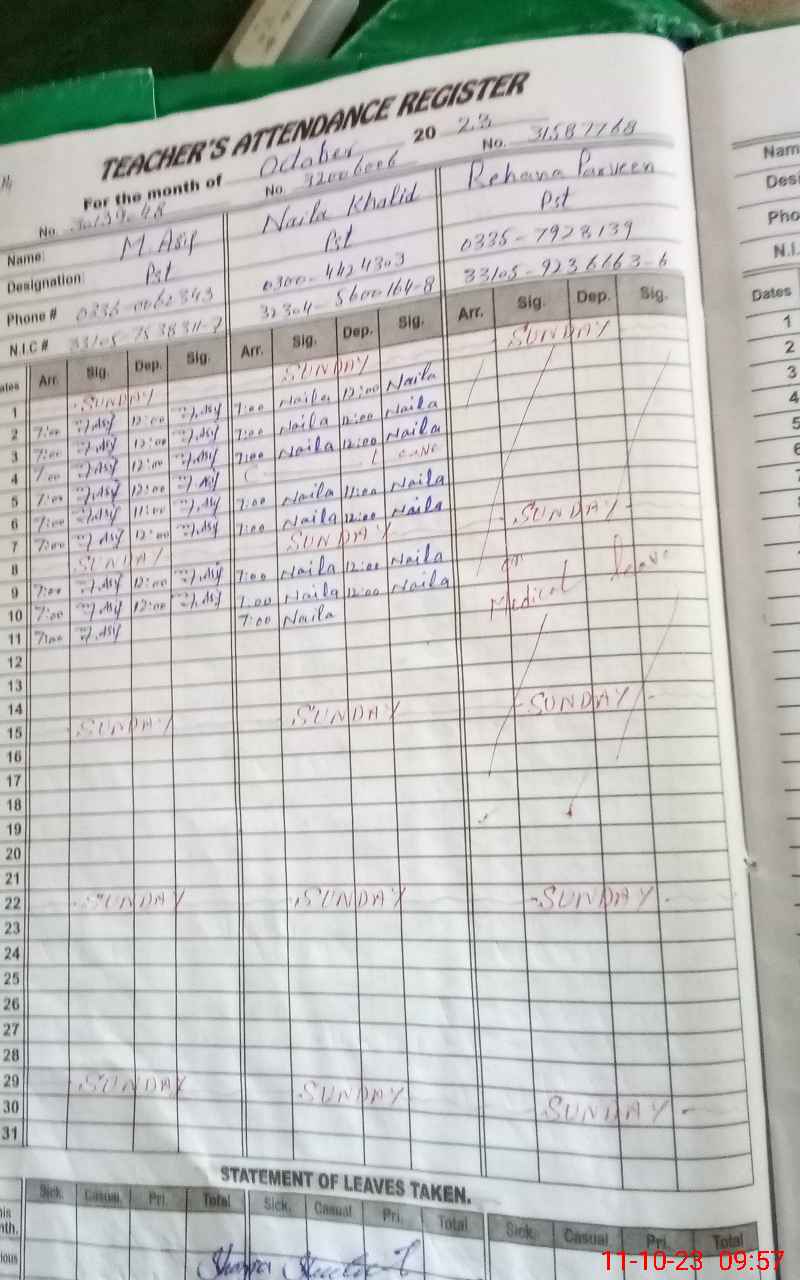 TEACHER'S ATTENDANCE REGISTER
For the month of October 20 23
No. No. 32006006 No. 31587768
Name: M. Asif Naila Khalid Rehana Parveen
Designation: Pst Pst Pst
Phone # 0336-0062343 0300-4424303 0335-7928139
N.I.C # 32304-5600164-8 33105-9236663-6
ates Arr. Sig. Dep. Sig. Arr. Sig. Dep. Sig. Arr. Sig. Dep. Sig.
1 SUNDAY SUNDAY SUNDAY
2 7:00 M.Asif 12:00 M.Asif 7:00 Naila 12:00 Naila
3 7:00 M.Asif 12:00 M.Asif 7:00 Naila 12:00 Naila
4 7:00 M.Asif 12:00 M.Asif 7:00 Naila 12:00 Naila
5 7:00 M.Asif 12:00 M.Asif C L
6 7:00 M.Asif 11:00 M.Asif 7:00 Naila 11:00 Naila
7 7:00 M.Asif 12:00 M.Asif 7:00 Naila 12:00 Naila
8 SUNDAY SUNDAY SUNDAY
9 7:00 M.Asif 12:00 M.Asif 7:00 Naila 12:00 Naila on
10 7:00 M.Asif 12:00 M.Asif 7:00 Naila 12:00 Naila Medical leave
11 7:00 M.Asif 7:00 Naila
12
13
14
15 SUNDAY SUNDAY SUNDAY
16
17
18
19
20
21
22 SUNDAY SUNDAY SUNDAY
23
24
25
26
27
28
29 SUNDAY SUNDAY SUNDAY
30
31
STATEMENT OF LEAVES TAKEN.
Sick. Casual. Pri. Total Sick. Casual Pri. Total Sick. Casual Pri. Total
nth.
ious
Nam
Desi
Pho
N.I.
Dates
1
2
3
4
5
11-10-23 09:57